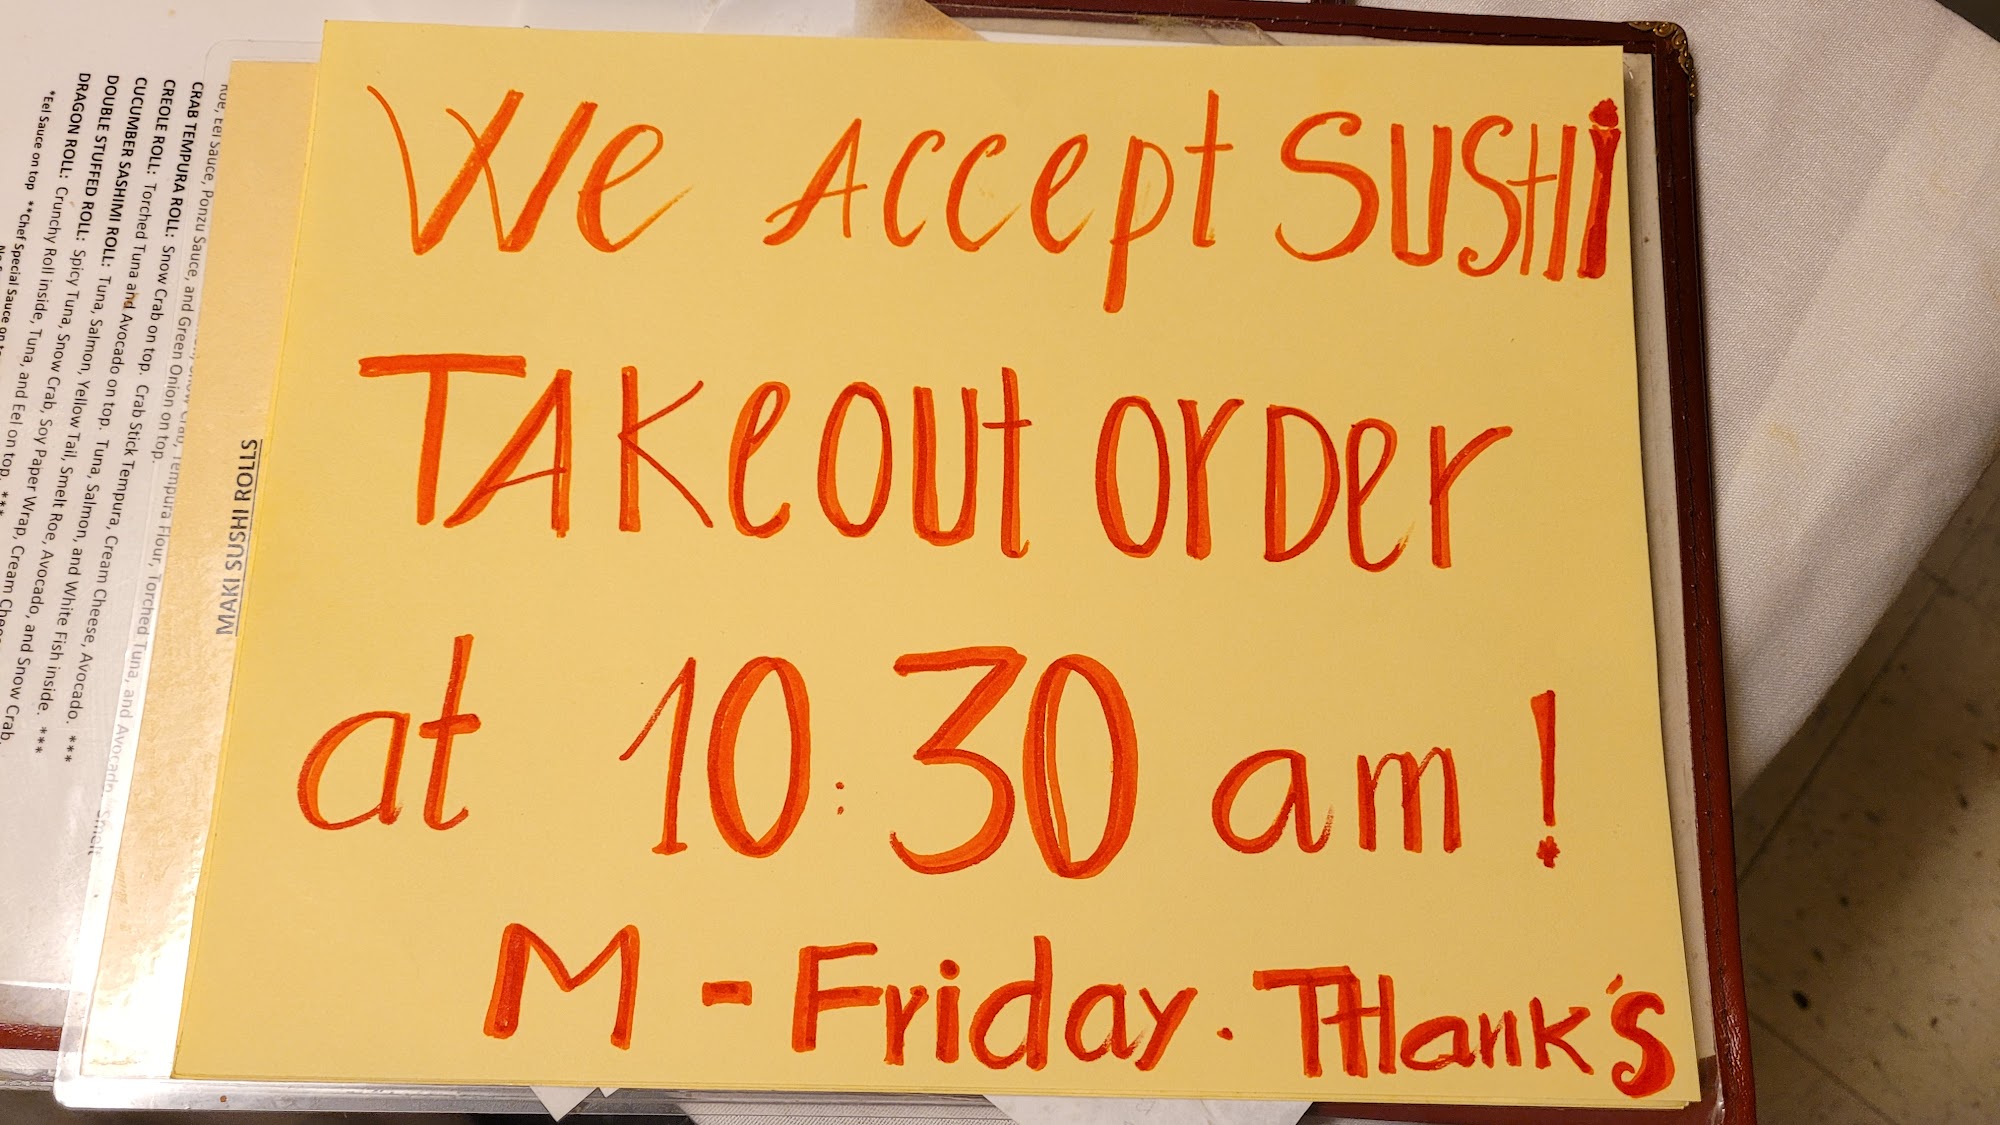 We Accept SUSHi
TAKeout OrDer
at 10:30 am!
M - Friday. THank's
MAKI SUSHI ROLLS
Roe, Eel Sauce, Ponzu Sauce, and Green Onion on top.
CRAB TEMPURA ROLL: Snow Crab, Tempura Flour, Torched Tuna, and Avocado, Smelt
CREOLE ROLL: Torched Tuna and Avocado on top. Crab Stick Tempura, Cream Cheese, Avocado. ***
CUCUMBER SASHIMI ROLL: Tuna, Salmon, Yellow Tail, Smelt Roe, Avocado, and Snow Crab,
DOUBLE STUFFED ROLL: Spicy Tuna, Snow Crab, Soy Paper Wrap, Cream
DRAGON ROLL: Crunchy Roll inside, Tuna, and Eel on top. ***
*Eel Sauce on top **Chef Special Sauce on